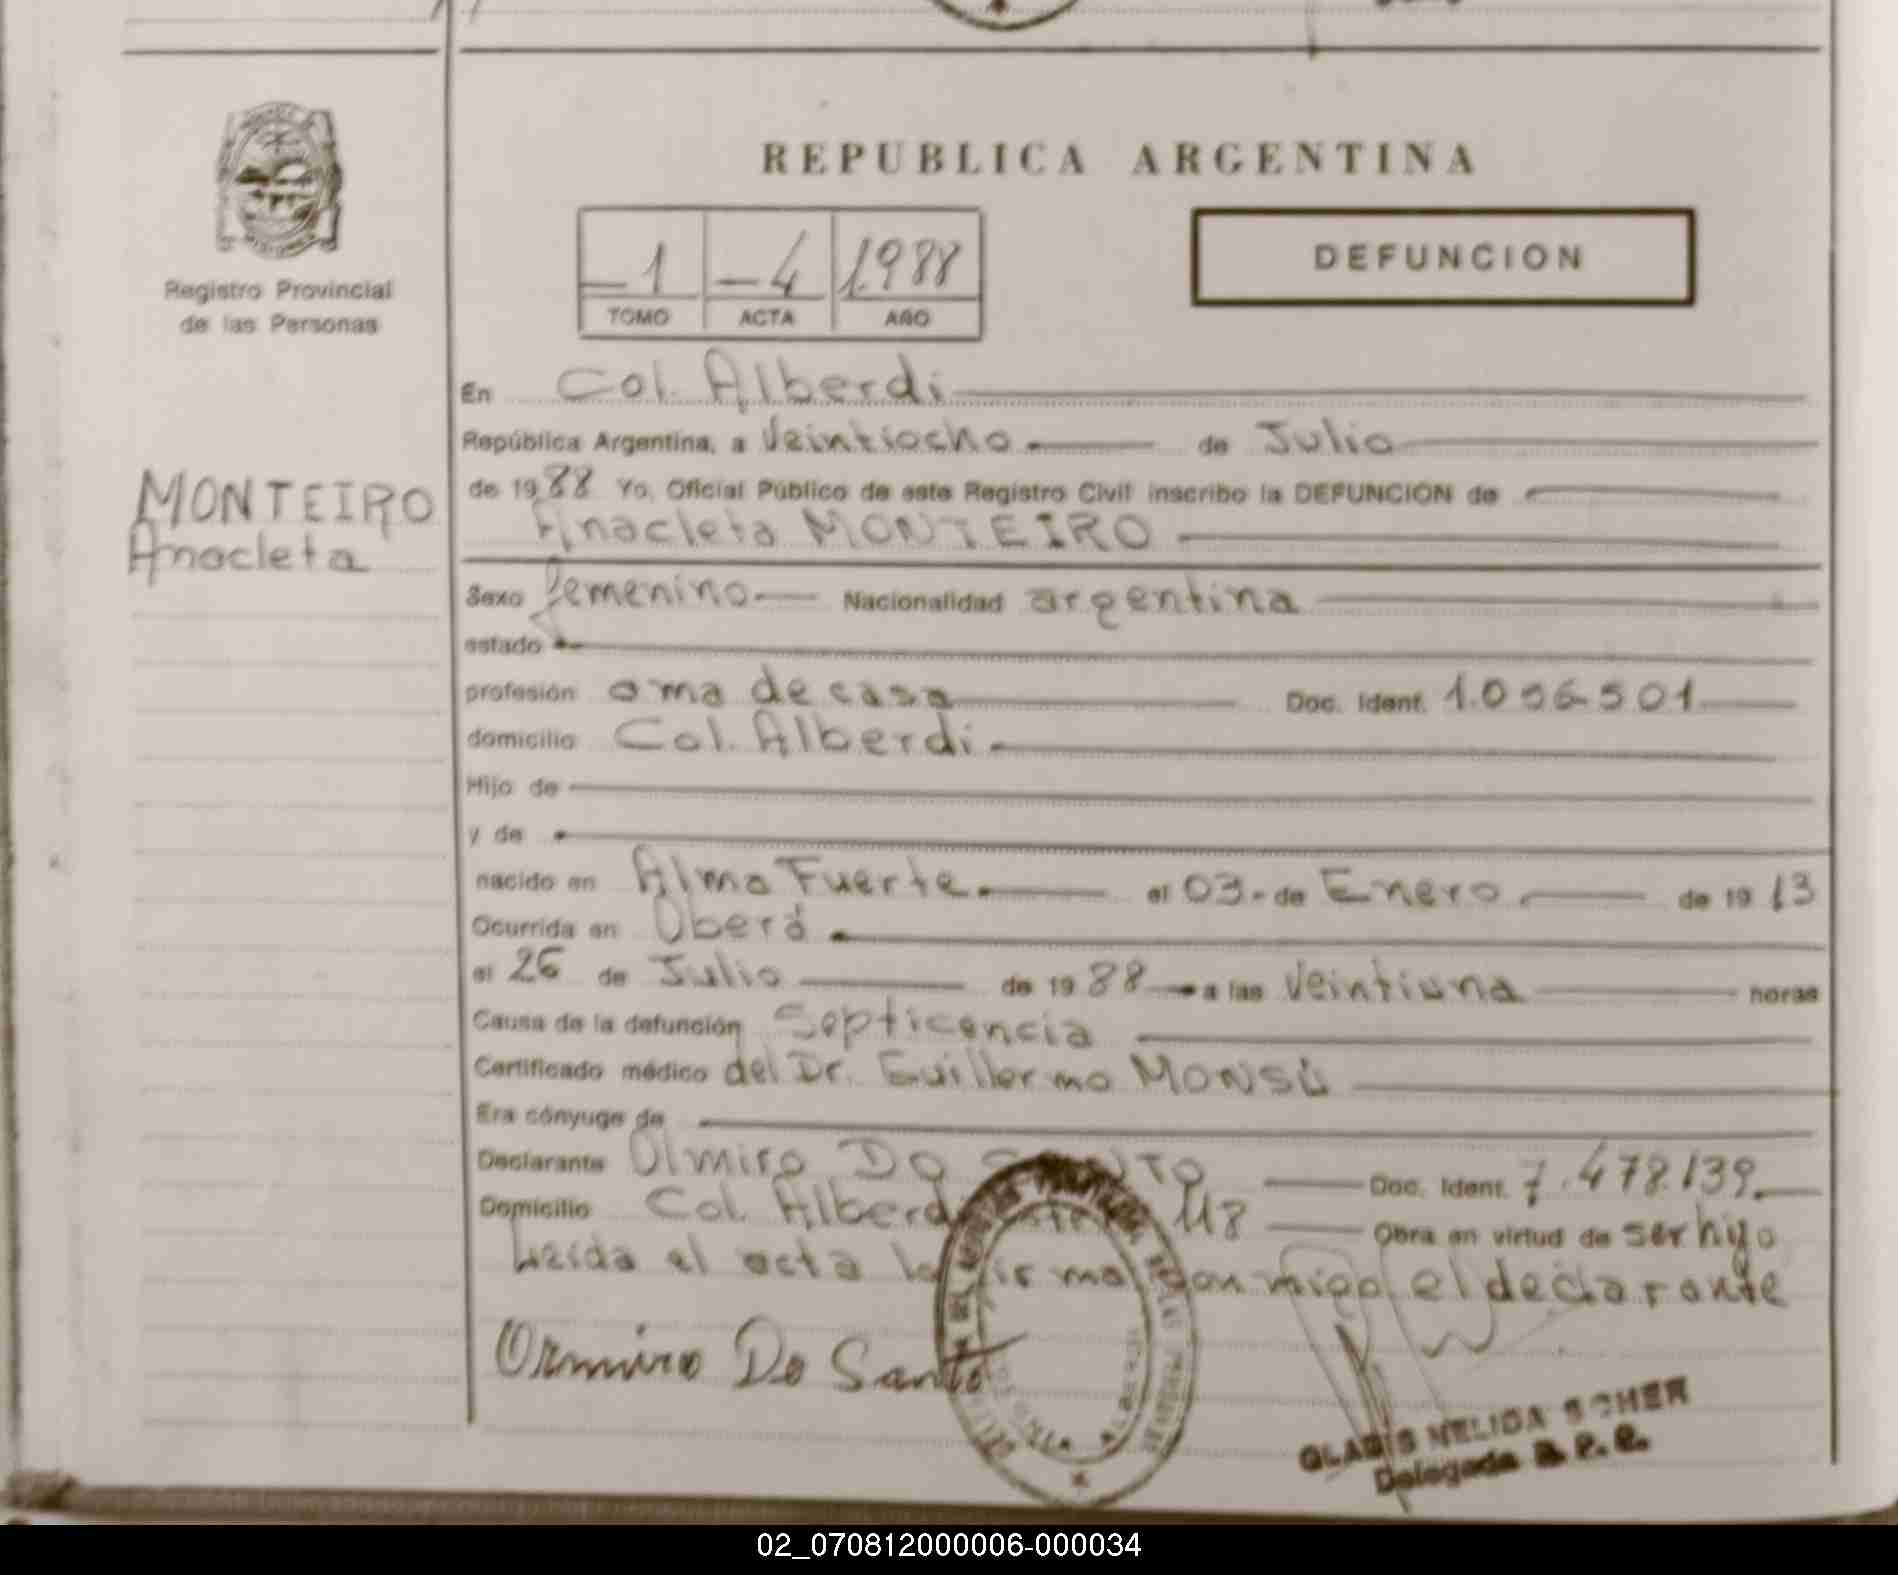 REPUBLICA ARGENTINA
Registro Provincial
de las Personas
1 4 1988
TOMO ACTA AÑO
DEFUNCION
MONTEIRO
Anacleta
En Col. Alberdi
República Argentina, a Veintiocho de Julio
de 1988 Yo, Oficial Público de este Registro Civil inscribo la DEFUNCION de
Anacleta MONTEIRO
Sexo femenino Nacionalidad argentina
estado
profesión ama de casa Doc. Ident.
domicilio Col. Alberdi
Hijo de
y de
nacido en Almo Fuerte el 03 de Enero de 1913
Ocurrida en Oberá
el 26 de Julio de 1988 a las Veintiuna horas
Causa de la defunción Septicencia
Certificado médico del Dr. Guillermo MONSÚ
Era cónyuge de
Declarante Olmiro DO SANTO Doc. Ident. 7.478.139
Domicilio Col. Alberdi 118 Obra en virtud de ser hijo
Leída el acta la firma conmigo el declarante
Ormiro Do Santo
GLADIS NELIDA SCHER
Delegada R. P. P.
02_070812000006-000034